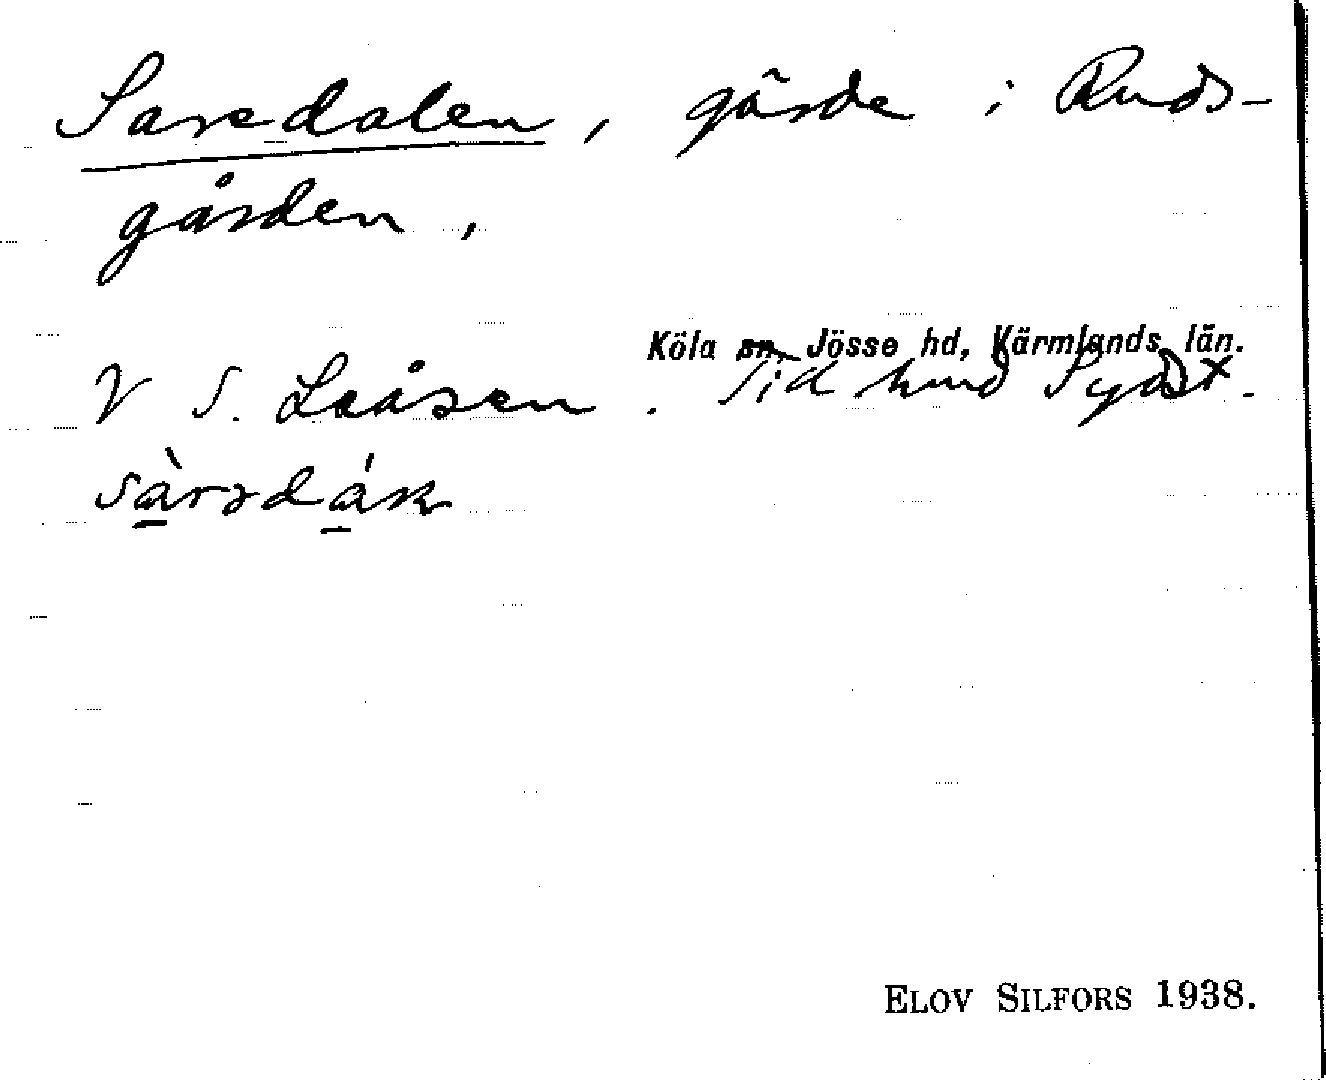 Sarsdalen, gärde i Ruds-
gården,
Köla sn, Jösse hd, Värmlands län.
V S. Leåsen. Sid hmd
sàrsdák
ELOV SILFORS 1938.